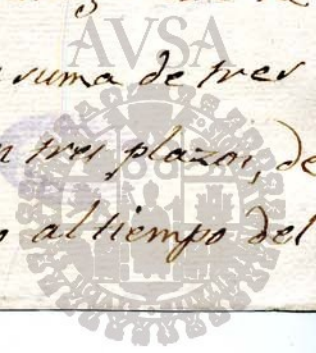 AVSA
suma de tres
tres plazos, de
al tiempo del